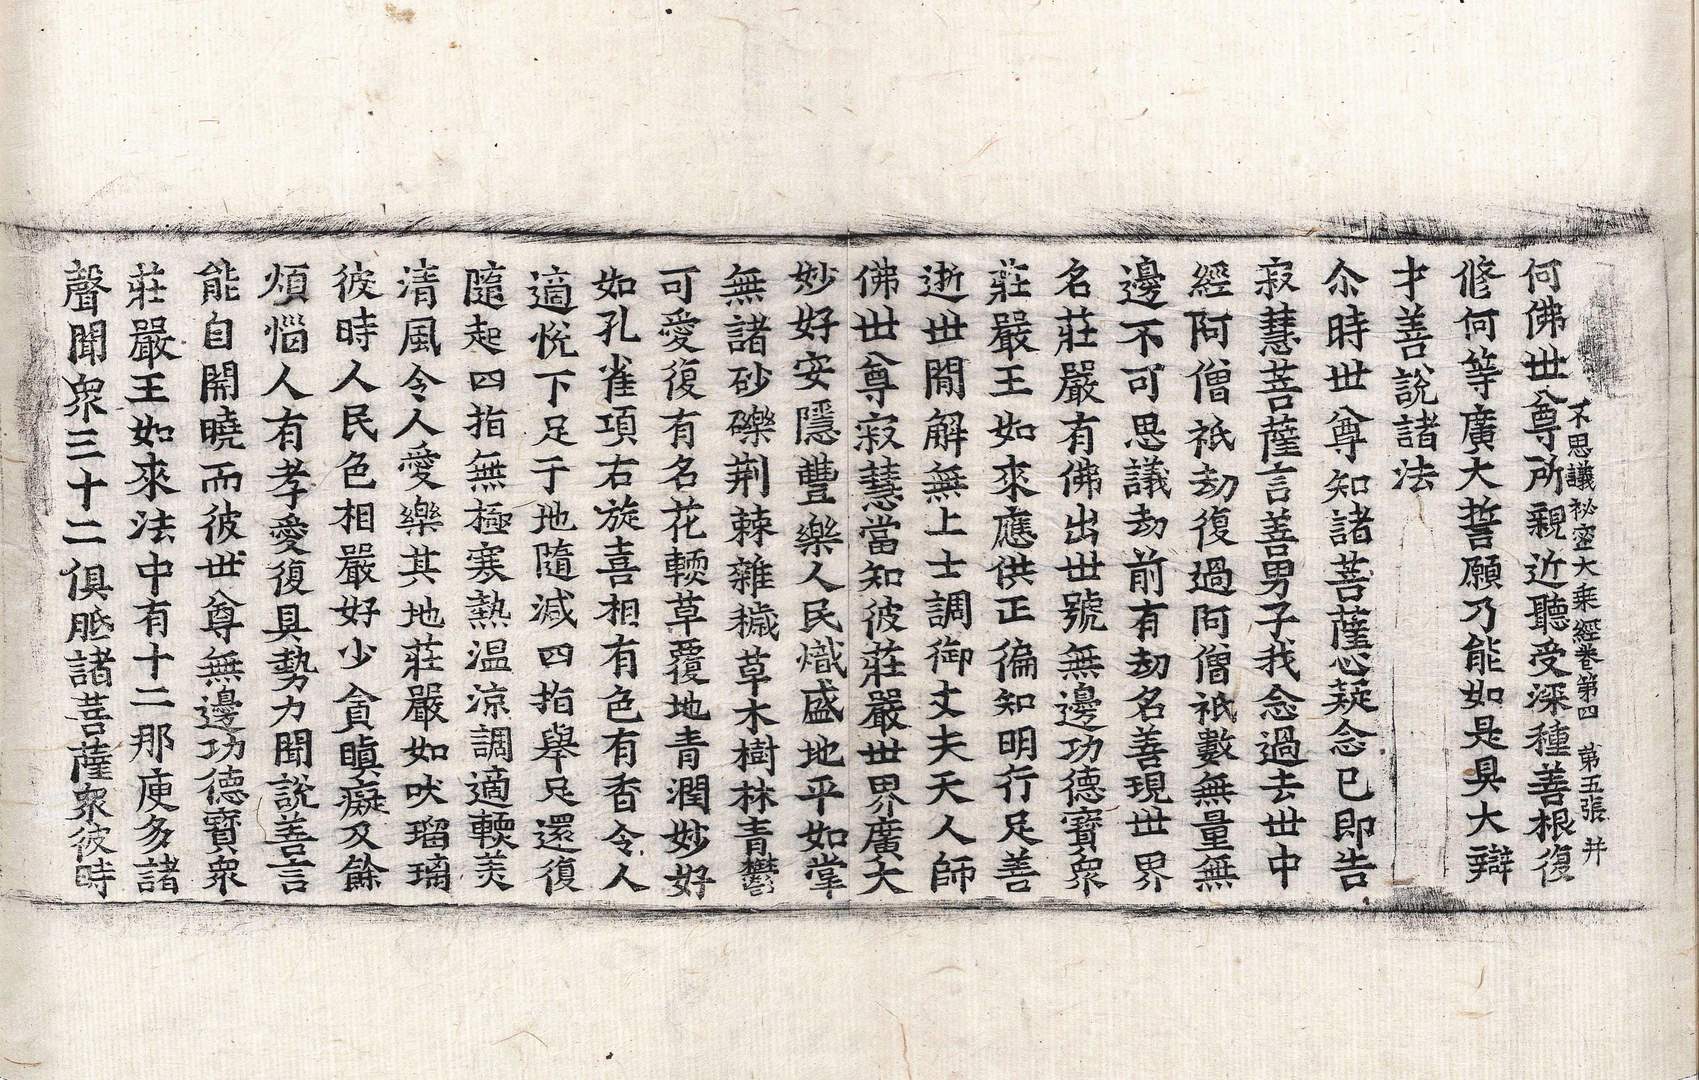 不思議祕密大乘經卷第四 第五張 井
何佛世尊所親近聽受深種善根復
修何等廣大誓願乃能如是具大辯
才善說諸法
尒時世尊知諸菩薩心疑念已即告
寂慧菩薩言善男子我念過去世中
經阿僧祇劫復過阿僧祇數無量無
邊不可思議劫前有劫名善現世界
名莊嚴有佛出世號無邊功德寶衆
莊嚴王如來應供正徧知明行足善
逝世閒解無上士調御丈夫天人師
佛世尊寂慧當知彼莊嚴世界廣大
妙好安隱豐樂人民熾盛地平如掌
無諸砂礫荆棘雜穢草木樹林青鬱
可愛復有名花輭草覆地青潤妙好
如孔雀項右旋喜相有色有香令人
適悅下足于地隨減四指舉足還復
隨起四指無極寒熱温涼調適輭美
清風令人愛樂其地莊嚴如吠瑠璃
彼時人民色相嚴好少貪瞋癡及餘
煩惱人有孝愛復具勢力聞說善言
能自開曉而彼世尊無邊功德寶衆
莊嚴王如來法中有十二那庾多諸
聲聞衆三十二俱胝諸菩薩衆彼時